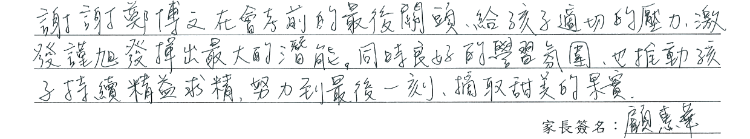 謝謝鄭博文在會考前的最後關頭、給孩子適切的壓力、激
發謹旭發揮出最大的潛能。同時良好的學習氛圍、也推動孩
子持續精益求精,努力到最後一刻、摘取甜美的果實.
家長簽名:顧惠華